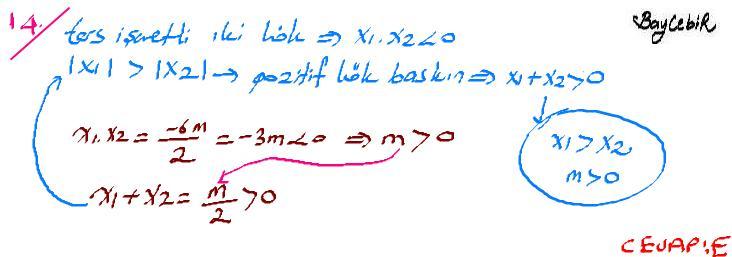 14. ters işaretli iki kök ⇒ x₁.x₂<0
BayCebiR
|x₁| > |x₂| → pozitif kök baskın ⇒ x₁+x₂>0
x₁.x₂ = -6m/2 = -3m<0 ⇒ m>0
x₁>x₂
m>0
x₁+x₂ = m/2 >0
CEVAP:E